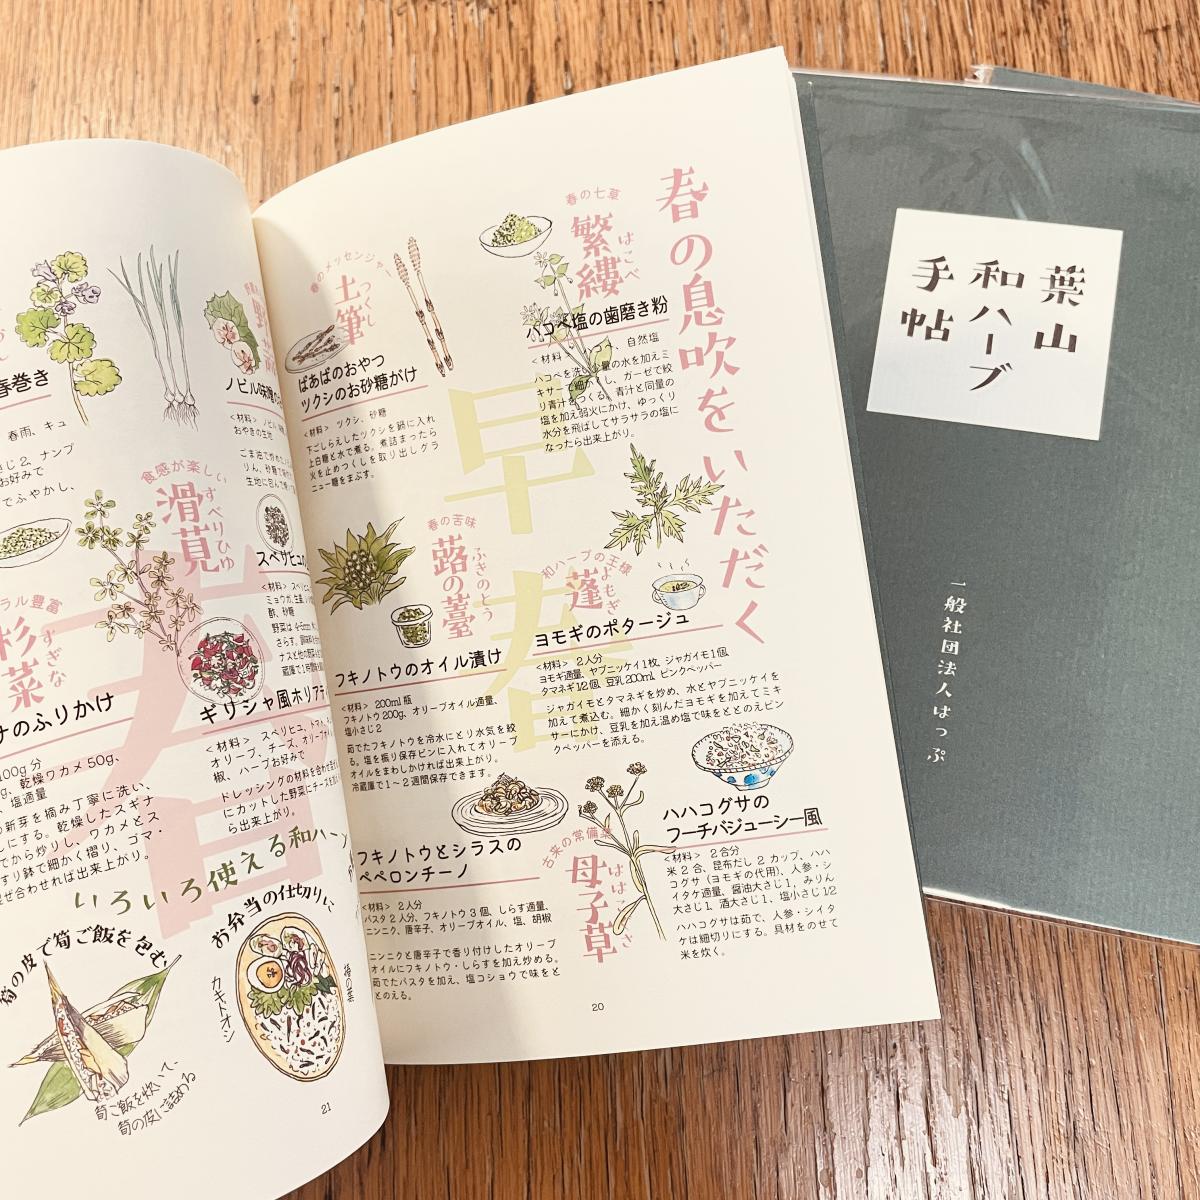 春の息吹をいただく
早春
春の七草
繁縷
はこべ
ハコベ塩の歯磨き粉
ハコベを洗い
量の水を加えミ
キサーで細か
し、ガーゼで絞
り青汁をつくる。青汁と同量の
塩を加え弱火にかけ、ゆっくり
水分を飛ばしてサラサラの塩に
なったら出来上がり。
春のメッセンジャー
土筆
つくし
ばあばのおやつ
ツクシのお砂糖がけ
<材料> ツクシ、砂糖
下ごしらえしたツクシを鍋に入れ
上白糖と水で煮る。煮詰まったら
火を止めつくしを取り出しグラ
ニュー糖をまぶす。
和ハーブの王様
蓬
よもぎ
ヨモギのポタージュ
<材料> 2人分
ヨモギ適量、ヤブニッケイ1枚、ジャガイモ1個、
タマネギ1/2個、豆乳200ml、ピンクペッパー
ジャガイモとタマネギを炒め、水とヤブニッケイを
加えて煮込む。細かく刻んだヨモギを加えてミキ
サーにかけ、豆乳を加え温め塩で味をととのえピン
クペッパーを添える。
春の苦味
蕗の薹
ふきのとう
フキノトウのオイル漬け
<材料> 200ml瓶
フキノトウ200g、オリーブオイル適量、
塩小さじ2
茹でたフキノトウを冷水にとり水気を絞
る。塩を振り保存ビンに入れてオリーブ
オイルをまわしかければ出来上がり。
冷蔵庫で1~2週間保存できます。
フキノトウとシラスの
ペペロンチーノ
<材料> 2人分
パスタ2人分、フキノトウ3個、しらす適量、
ニンニク、唐辛子、オリーブオイル、塩、胡椒
ニンニクと唐辛子で香り付けしたオリーブ
オイルにフキノトウ・しらすを加え炒める。
茹でたパスタを加え、塩コショウで味をと
とのえる。
古来の常備薬
母子草
ハハコグサの
フーチバジューシー風
<材料> 2合分
米2合、昆布だし2カップ、ハハ
コグサ（ヨモギの代用）、人参・シ
イタケ適量、醤油大さじ1、みりん
大さじ1、酒大さじ1、塩小さじ1/2
ハハコグサは茹で、人参・シイタ
ケは細切りにする。具材をのせて
米を炊く。
20
春巻き
春雨、キュ
さじ2、ナンプ
お好みで
でふやかし、
食感が楽しい
滑莧
すべりひゆ
ギリシャ風ホリアテ
<材料> スベリヒユ、トマト、
オリーブ、チーズ、オリーブオイル
椒、ハーブお好みで
ドレッシングの材料を合わせ
にカットした野菜とチーズを
ら出来上がり。
ラル豊富
杉菜
すぎな
ナのふりかけ
100g分
g、乾燥ワカメ50g、
、塩適量
の新芽を摘み丁寧に洗い、
しにする。乾燥したスギナ
でから炒りし、ワカメとス
すり鉢で細かく摺り、ゴマ・
混ぜ合わせれば出来上がり。
いろいろ使える和ハーブ
筍の皮で筍ご飯を包む
筍ご飯を炊いて、
筍の皮に詰める
お弁当の仕切りに
カキドオシ
21
葉山
和ハーブ
手帖
一般社団法人はっぷ